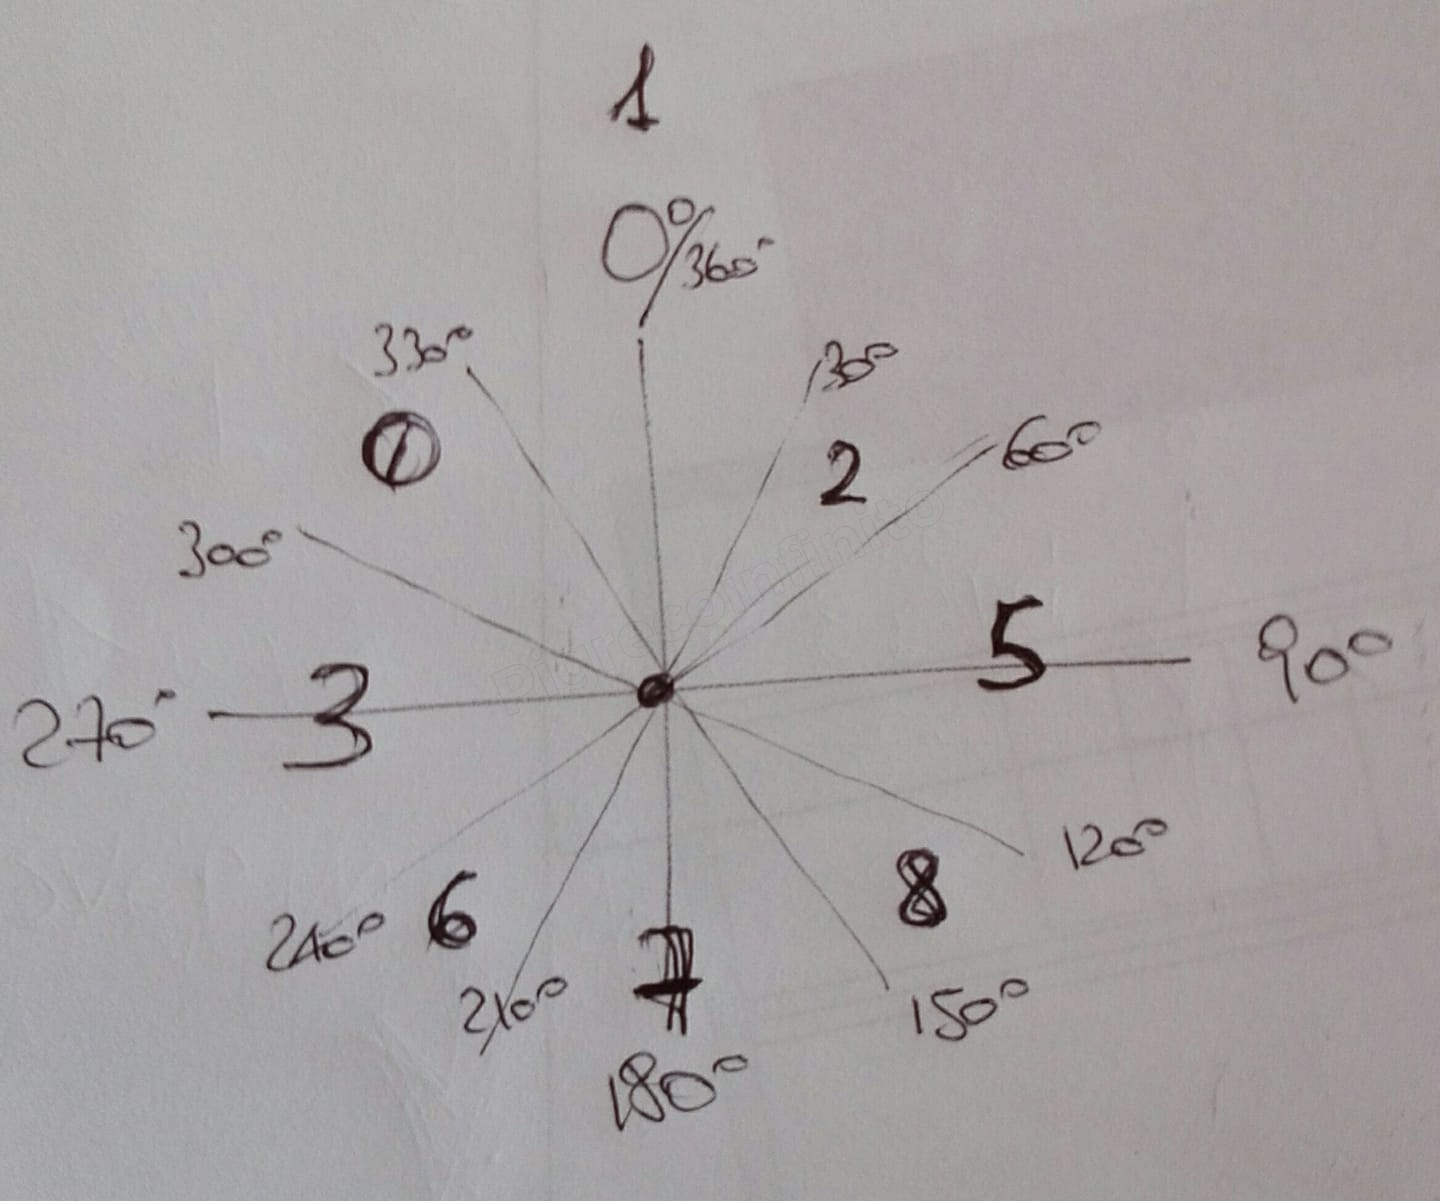 1
0°/360°
330°
30°
2
60°
300°
5
90°
270°
3
120°
8
240°
6
210°
7
150°
180°
Pigrecoinfinito